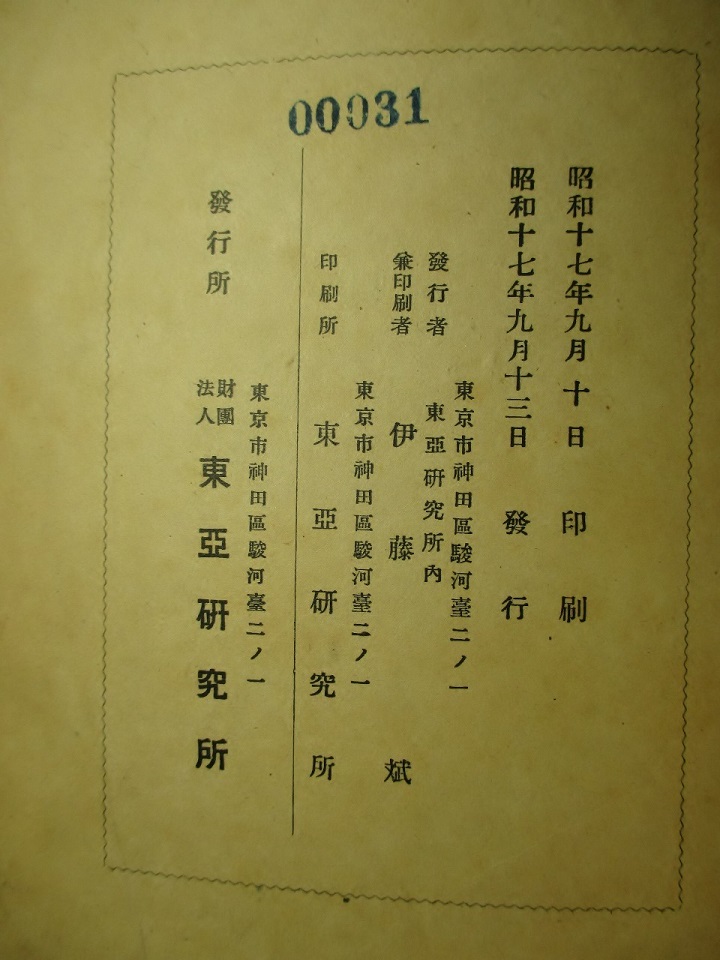 00031
昭和十七年九月十日印刷
昭和十七年九月十三日發行
東京市神田區駿河臺二ノ一
東亞研究所內
發行者
兼印刷者
伊藤斌
東京市神田區駿河臺二ノ一
印刷所 東亞硏究所
東京市神田區駿河臺二ノ一
發行所 財團法人 東亞硏究所